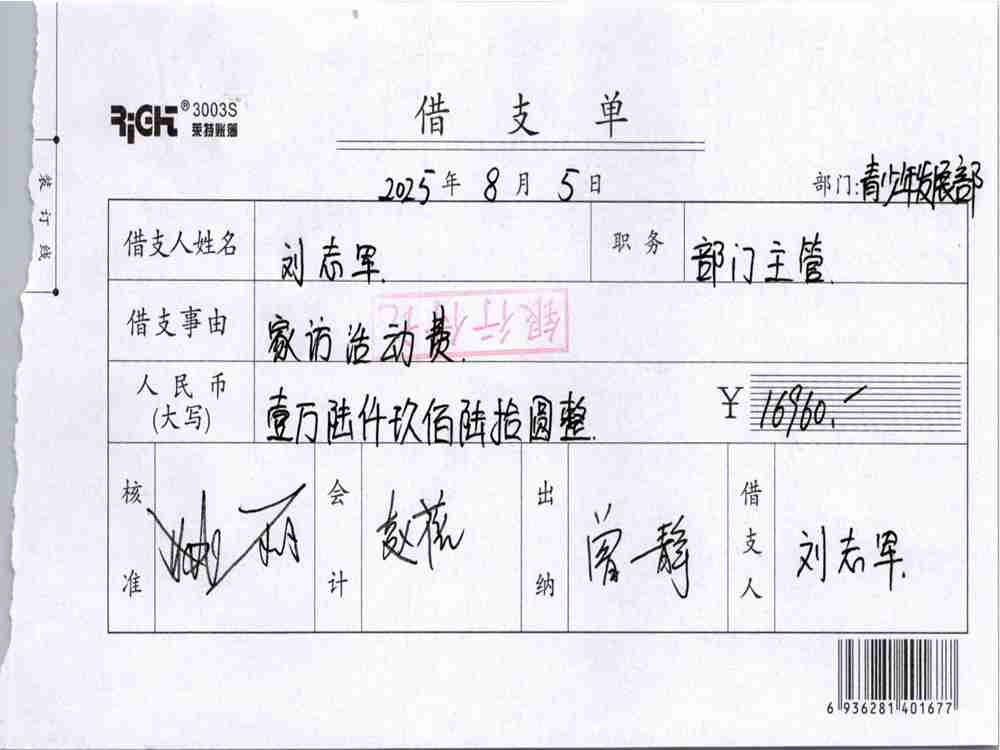 RiGHT®3003S
莱特账簿
借支单
2025年8月5日
部门:青少年发展部
装订线
借支人姓名 刘志军. 职务 部门主管.
借支事由 家访活动费.
银行付讫
人民币(大写) 壹万陆仟玖佰陆拾圆整. ¥16960.
核准 会计 赵蓓 出纳 曾静 借支人 刘志军.
6 936281 401677